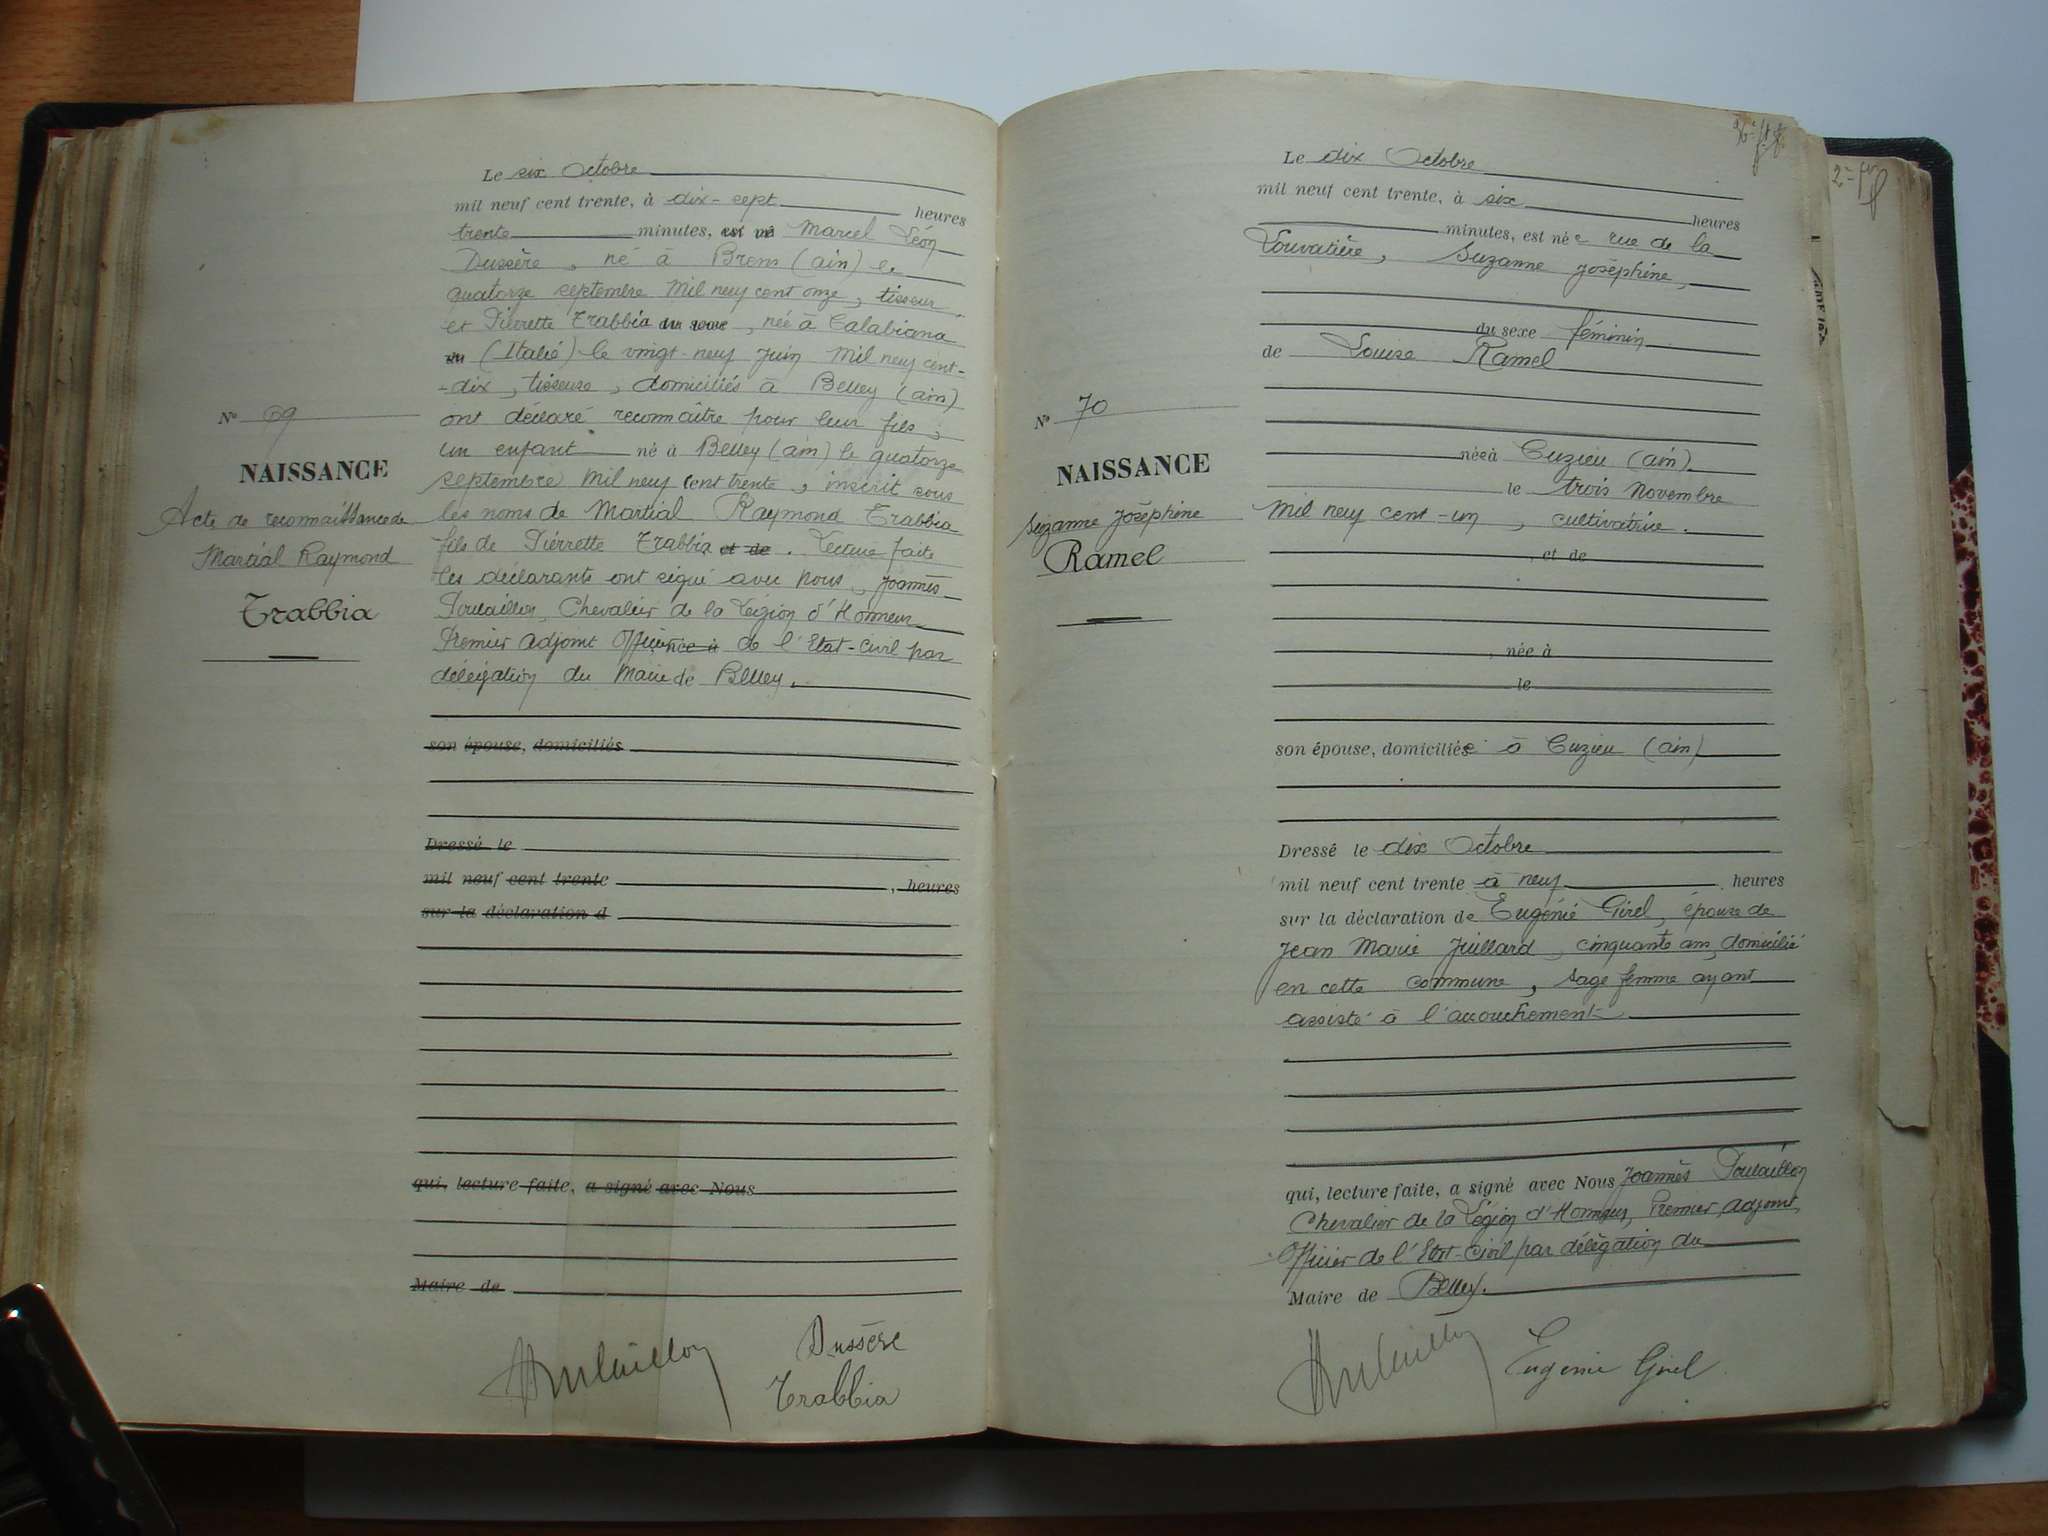 Le six Octobre
mil neuf cent trente, à dix-sept heures
trente minutes, est né Marcel Léon
Dussère, né à Brens (ain) le
quatorze septembre mil neuf cent onze, tisseur
et Pierrette Trabbia du sexe, née à Calabiana
(Italie) le vingt-neuf Juin mil neuf cent-
-dix, tisseuse, domiciliés à Belley (ain)
ont déclaré reconnaître pour leur fils,
un enfant né à Belley (ain) le quatorze
septembre mil neuf cent trente, inscrit sous
les noms de Martial Raymond Trabbia
fils de Pierrette Trabbia et de. Lecture faite
les déclarants ont signé avec nous, Joannès
Poulaillon, Chevalier de la Légion d'Honneur
Premier adjoint Officier de l'Etat-Civil par
délégation du Maire de Belley.
son épouse, domiciliés
Dressé le
mil neuf cent trente, heures
sur la déclaration d
qui, lecture faite, a signé avec Nous
Maire de
Dussère
Trabbia
N° 69
NAISSANCE
Acte de reconnaissance de
Martial Raymond
Trabbia
Le dix Octobre
mil neuf cent trente, à six heures
minutes, est née rue de la
Louvatière, Suzanne Joséphine,
du sexe féminin
de Louise Ramel
née à Cuzieu (ain)
le trois Novembre
mil neuf cent-un, cultivatrice.
, et de
, née à
le
son épouse, domiciliée à Cuzieu (ain)
Dressé le dix Octobre
mil neuf cent trente à neuf heures
sur la déclaration de Eugénie Girel, épouse de
Jean Marie Juillard, cinquante ans, domicilié
en cette commune, sage femme ayant
assisté à l'accouchement
qui, lecture faite, a signé avec Nous Joannès Poulaillon
Chevalier de la Légion d'Honneur, Premier adjoint,
Officier de l'Etat-Civil par délégation du
Maire de Belley.
Eugénie Girel
N° 70
NAISSANCE
Suzanne Joséphine
Ramel